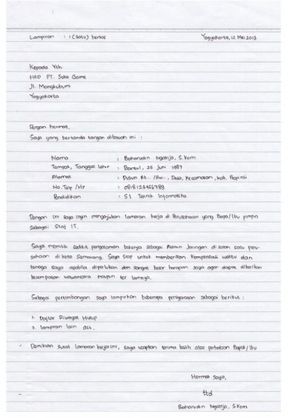 Lampiran : 1 (Satu) berkas Yogyakarta, 12 Mei 2013
Kepada Yth
HRD PT. Suka Game
Jl. Mangkubumi
Yogyakarta
Dengan hormat,
Saya yang bertanda tangan dibawah ini :
Nama : Baharudin Ngaorjo, S.Kom
Tempat, Tanggal Lahir : Bantul, 25 Juni 1987
Alamat : Dusun Rt. /Rw. , Desa, Kecamatan, Kab, Provinsi
No. Telp / Hp : 08812345678
Pendidikan : S1 Teknik Informatika
Dengan ini saya ingin mengajukan lamaran kerja di Perusahaan yang Bapak/Ibu pimpin
sebagai Staf IT.
Saya memiliki sedikit pengalaman bekerja sebagai Admin Jaringan di salah satu peru-
sahaan di kota Semarang. Saya siap untuk memberikan kompetensi waktu dan
tenaga saya apabila diperlukan dan sangat besar harapan saya agar dapat diberikan
kesempatan wawancara maupun tes lainnya.
Sebagai pertimbangan saya lampirkan beberapa persyaratan sebagai berikut :
1. Daftar Riwayat Hidup
2. Lampiran lain dst.
Demikian surat lamaran kerja ini, saya ucapkan terima kasih atas perhatian Bapak/Ibu
Hormat Saya,
ttd
Baharudin Ngaorjo, S.Kom